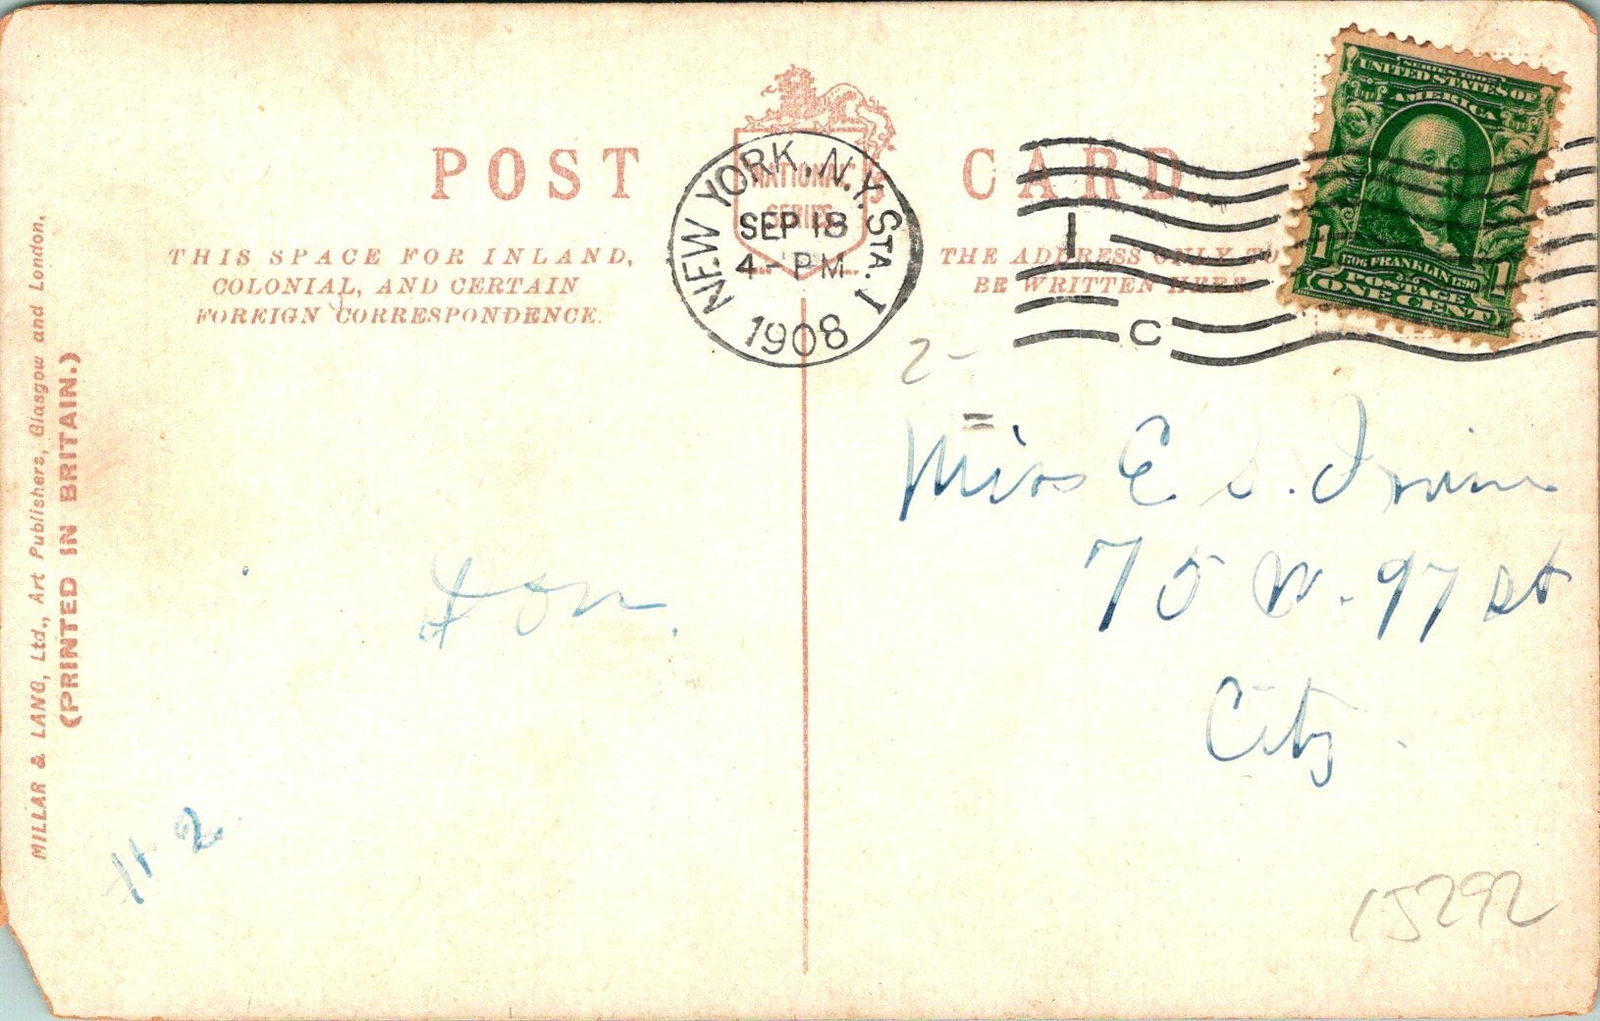 POST CARD.
NATIONAL
SERIES
THIS SPACE FOR INLAND,
COLONIAL, AND CERTAIN
FOREIGN CORRESPONDENCE.
THE ADDRESS ONLY TO
BE WRITTEN HERE.
NEW YORK, N.Y. STA. 1
SEP 18
4 - PM
1908
1
C
SERIES 1902
UNITED STATES OF
AMERICA
1706 FRANKLIN 1790
1 POSTAGE 1
ONE CENT
MILLAR & LANG, Ltd., Art Publishers, Glasgow and London.
(PRINTED IN BRITAIN.)
2-
Miss E S. Irvine
70 W. 97 st
City.
H 2
15292